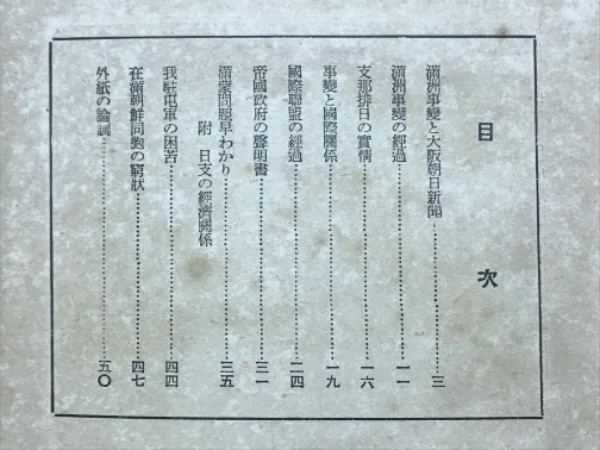 目次
滿洲事變と大阪朝日新聞………三
滿洲事變の經過………一一
支那排日の實情………一六
事變と國際關係………一九
國際聯盟の經過………二四
帝國政府の聲明書………三一
滿蒙問題早わかり………三五
附 日支の經濟關係
我駐屯軍の困苦………四四
在滿朝鮮同胞の窮狀………四七
外紙の論調………五〇